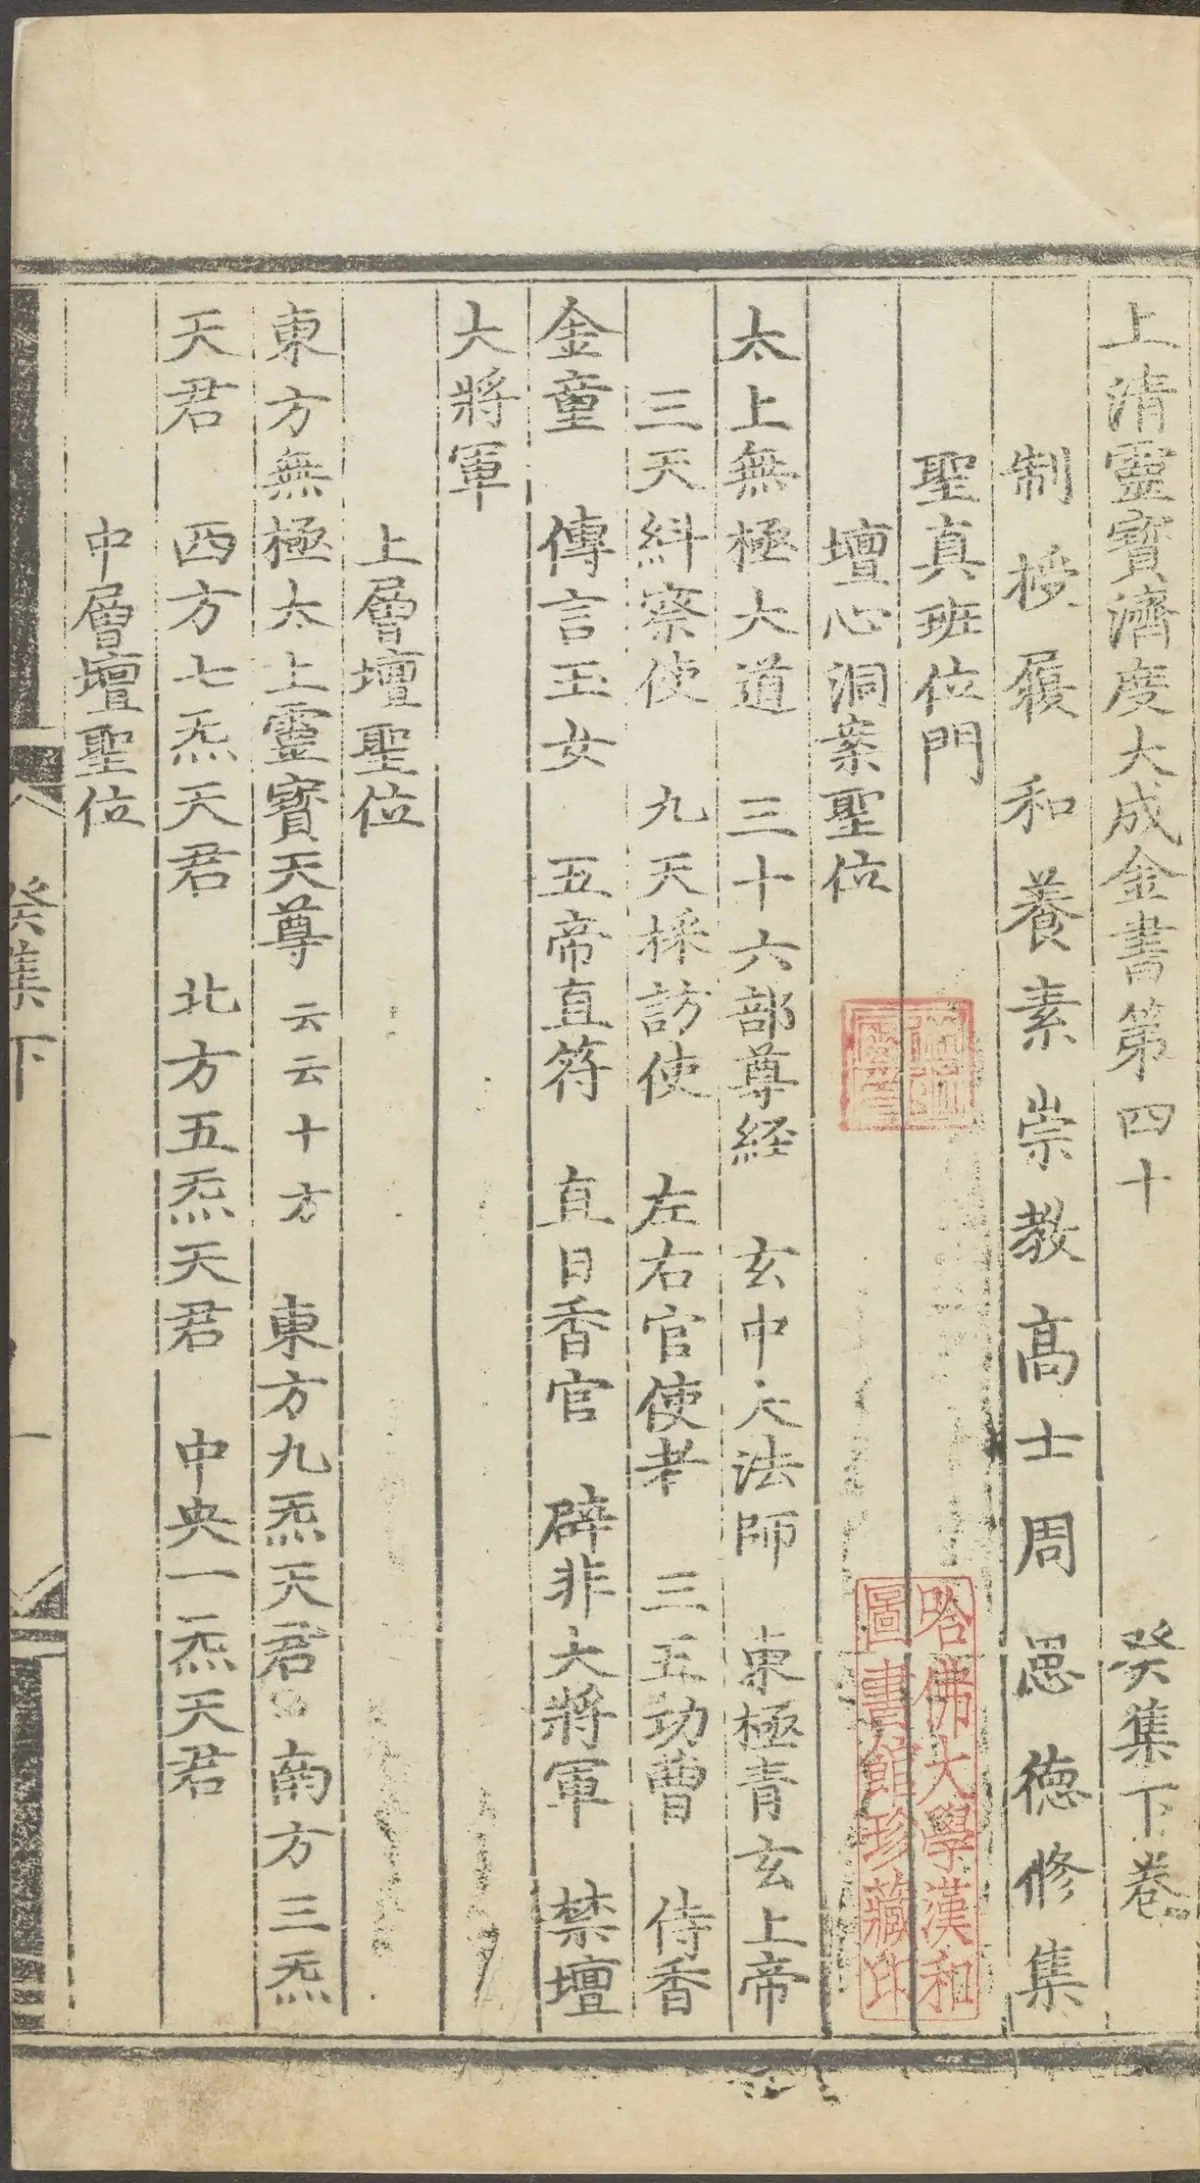 上清靈寶濟度大成金書第四十 癸集下卷
制授履和養素崇教高士周思德修集
聖真班位門
壇心洞案聖位
太上無極大道 三十六部尊經 玄中大法師 東極青玄上帝
三天糾察使 九天採訪使 左右官使者 三五功曹 侍香
金童 傳言玉女 五帝直符 直日香官 辟非大將軍 禁壇
大將軍
上層壇聖位
東方無極太上靈寶天尊云云十方 東方九炁天君 南方三炁
天君 西方七炁天君 北方五炁天君 中央一炁天君
中層壇聖位
癸集下 一
哈佛大學漢和
圖書館珍藏印